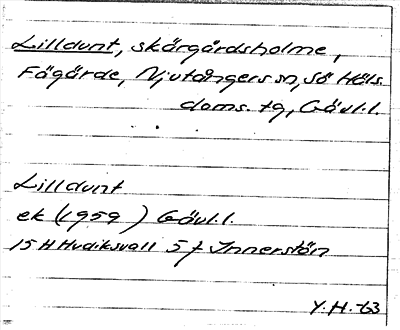 Lilldunt, skärgårdsholme,
Fågärde, Njutångers sn, Sö Häls.
doms. tg, Gävl.l.
Lilldunt
ek (1959 ) Gävl.l.
15 H Hudiksvall 5 f Innerstön
Y.H.-63